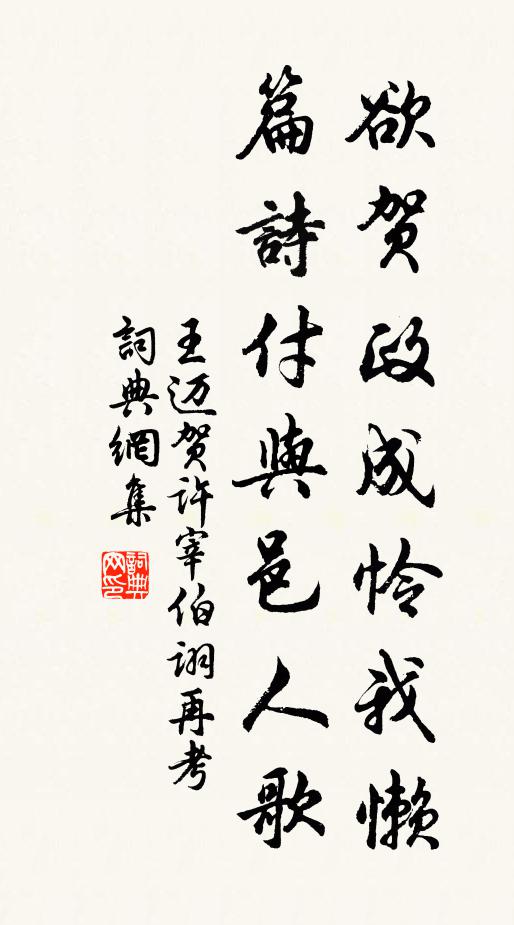 欲贺政成怜我懒
篇詩付與邑人歌
王迈贺许宰伯詡再考
詞典網集
詞典网印